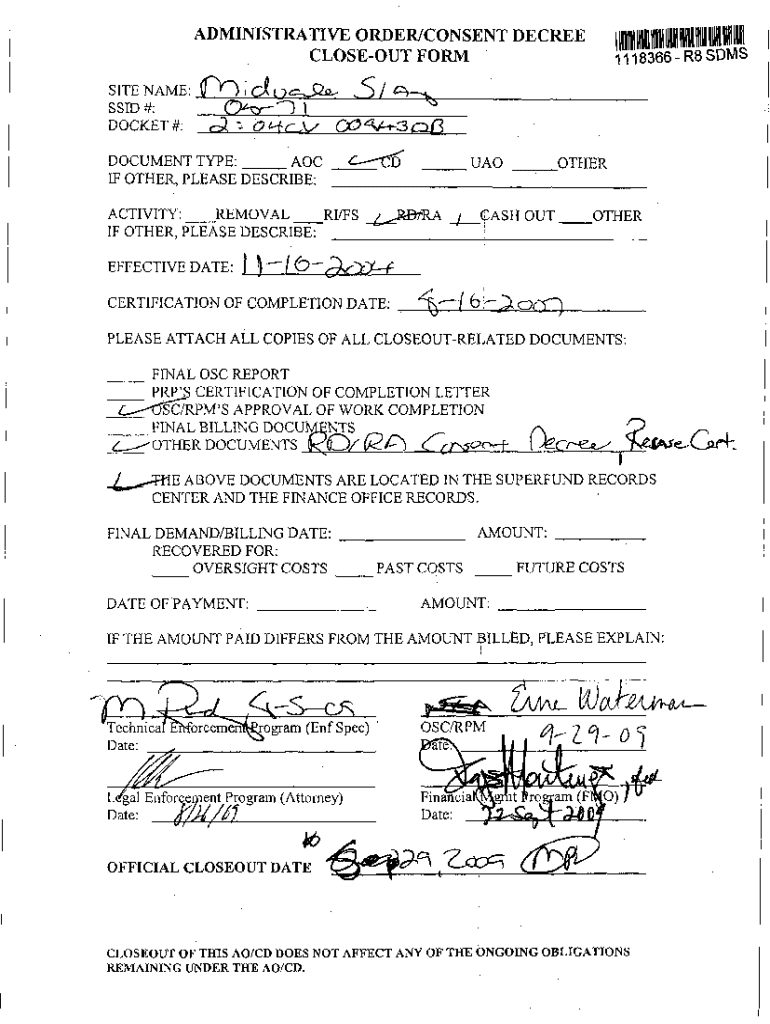 ADMINISTRATIVE ORDER/CONSENT DECREE
CLOSE-OUT FORM
1118366 - R8 SDMS
SITE NAME: Midvale Slag
SSID #:
DOCKET #: 2:04CV 00943DB
DOCUMENT TYPE: AOC CD UAO OTHER
IF OTHER, PLEASE DESCRIBE:
ACTIVITY: REMOVAL RI/FS RD/RA CASH OUT OTHER
IF OTHER, PLEASE DESCRIBE:
EFFECTIVE DATE: 11-16-2004
CERTIFICATION OF COMPLETION DATE: 8-16-2007
PLEASE ATTACH ALL COPIES OF ALL CLOSEOUT-RELATED DOCUMENTS:
FINAL OSC REPORT
PRP'S CERTIFICATION OF COMPLETION LETTER
OSC/RPM'S APPROVAL OF WORK COMPLETION
FINAL BILLING DOCUMENTS
OTHER DOCUMENTS RD/RA Consent Decree Cert.
THE ABOVE DOCUMENTS ARE LOCATED IN THE SUPERFUND RECORDS
CENTER AND THE FINANCE OFFICE RECORDS.
FINAL DEMAND/BILLING DATE: AMOUNT:
RECOVERED FOR:
OVERSIGHT COSTS PAST COSTS FUTURE COSTS
DATE OF PAYMENT: AMOUNT:
IF THE AMOUNT PAID DIFFERS FROM THE AMOUNT BILLED, PLEASE EXPLAIN:
Erna Waterman
Technical Enforcement Program (Enf Spec) OSC/RPM
Date: Date: 9-29-09
Legal Enforcement Program (Attorney) Financial Mgmt Program (FMO)
Date: 8/26/09 Date: 22 Sept 2009
OFFICIAL CLOSEOUT DATE 29, 2009 MR
CLOSEOUT OF THIS AO/CD DOES NOT AFFECT ANY OF THE ONGOING OBLIGATIONS
REMAINING UNDER THE AO/CD.